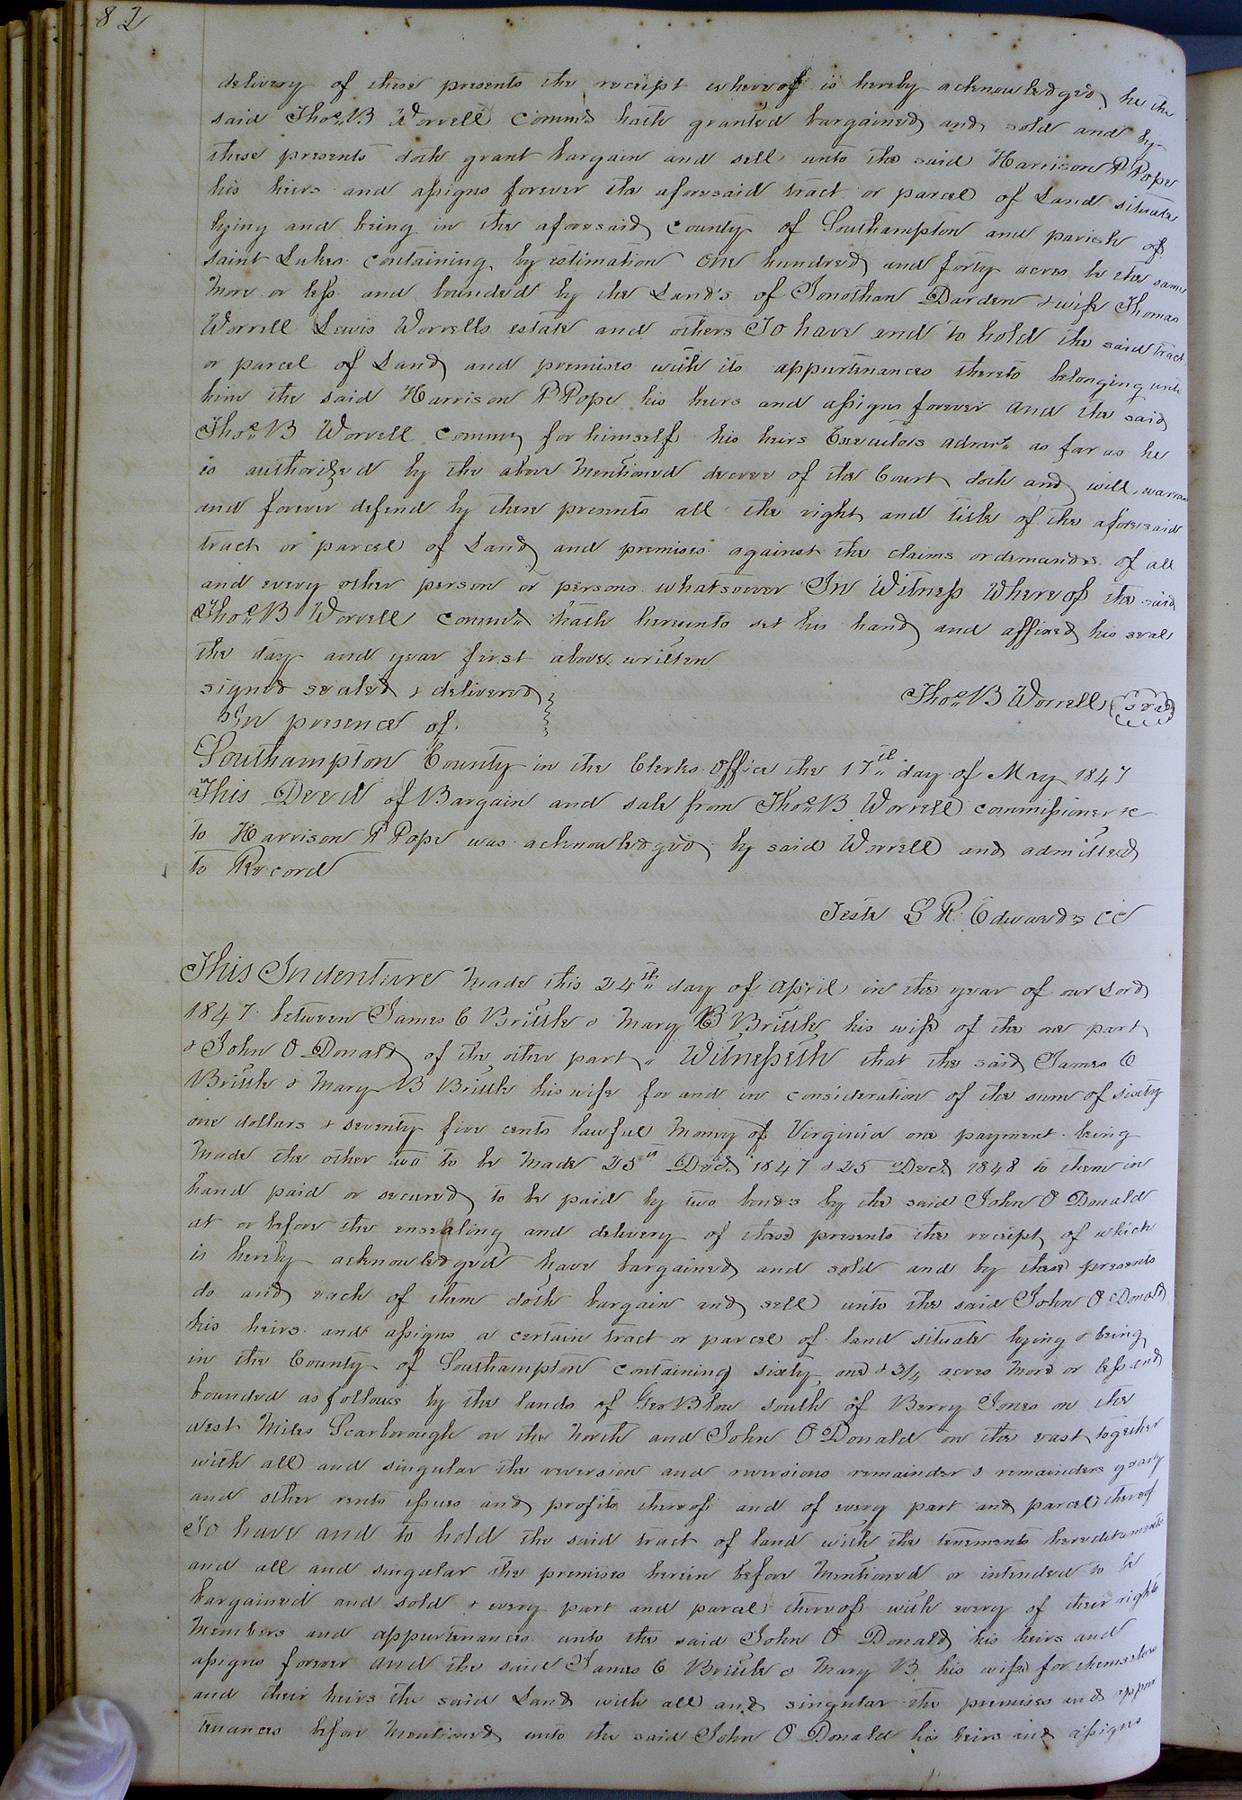 82
delivery of these presents the receipt whereof is hereby acknowledged he the
said Thos. B Worrell Commr hath granted bargained and sold and by
these presents doth grant bargain and sell unto the said Harrison P Pope
his heirs and assigns forever the aforesaid tract or parcel of Land situate
lying and being in the aforesaid County of Southampton and parish of
Saint Lukes containing by estimation One hundred and forty acres be the same
more or less and bounded by the Land's of Jonothan Darden & wife Thomas
Worrell Lewis Worrells estate and others To have and to hold the said tract
or parcel of Land and premises with its appurtenances thereto belonging unto
him the said Harrison P Pope his heirs and assigns forever and the said
Thos. B Worrell Commr for himself his heirs Executors admrs as far as he
is authorized by the above mentioned decree of the Court doth and will warran
and forever defend by these presents all the right and title of the aforesaid
tract or parcel of Land and premises against the claims or demandes of all
and every other person or persons whatsoever In Witness Whereof the said
Thos. B Worrell Commr hath hereunto set his hand and affixed his seal
the day and year first above written
signed sealed & delivered
In presence of
Thos. B Worrell Seal
Southampton County in the Clerks Office the 17th day of May 1847
This Deed of Bargain and sale from Thos. B Worrell commissioner &c
to Harrison P Pope was acknowledged by said Worrell and admitted
to Record
Teste L R Edwards CC
This Indenture made this 24th day of April in the year of our Lord
1847 between James C Brittle & Mary B Brittle his wife of the one part
& John O Donald of the other part Witnesseth that the said James C
Brittle & Mary B Brittle his wife for and in consideration of the sum of sixty
one dollars & seventy five cents lawful money of Virginia one payment being
made the other two to be made 25th Decr 1847 & 25 Decr 1848 to them in
hand paid or secured to be paid by two bonds by the said John O Donald
at or before the ensealing and delivery of these presents the receipt of which
is hereby acknowledged have bargained and sold and by these presents
do and each of them doth bargain and sell unto the said John O Donald
his heirs and assigns a certain tract or parcel of land situate lying & being
in the County of Southampton containing sixty one & 3/4 acres more or less and
bounded as follows by the lands of Geo Blow south of Berry Jones on the
west Miles Scarborough on the North and John O Donald on the east together
with all and singular the reversion and reversions remainder & remainders yearly
and other rents issues and profits thereof and of every part and parcel thereof
To have and to hold the said tract of land with the tenements hereditaments
and all and singular the premises herein before mentioned or intended to be
bargained and sold & every part and parcel thereof with every of their rights
members and appurtenances unto the said John O Donald his heirs and
assigns forever and the said James C Brittle & Mary B his wife for themselves
and their heirs the said Land with all and singular the premises and appur
tenances before mentioned unto the said John O Donald his heirs and assigns